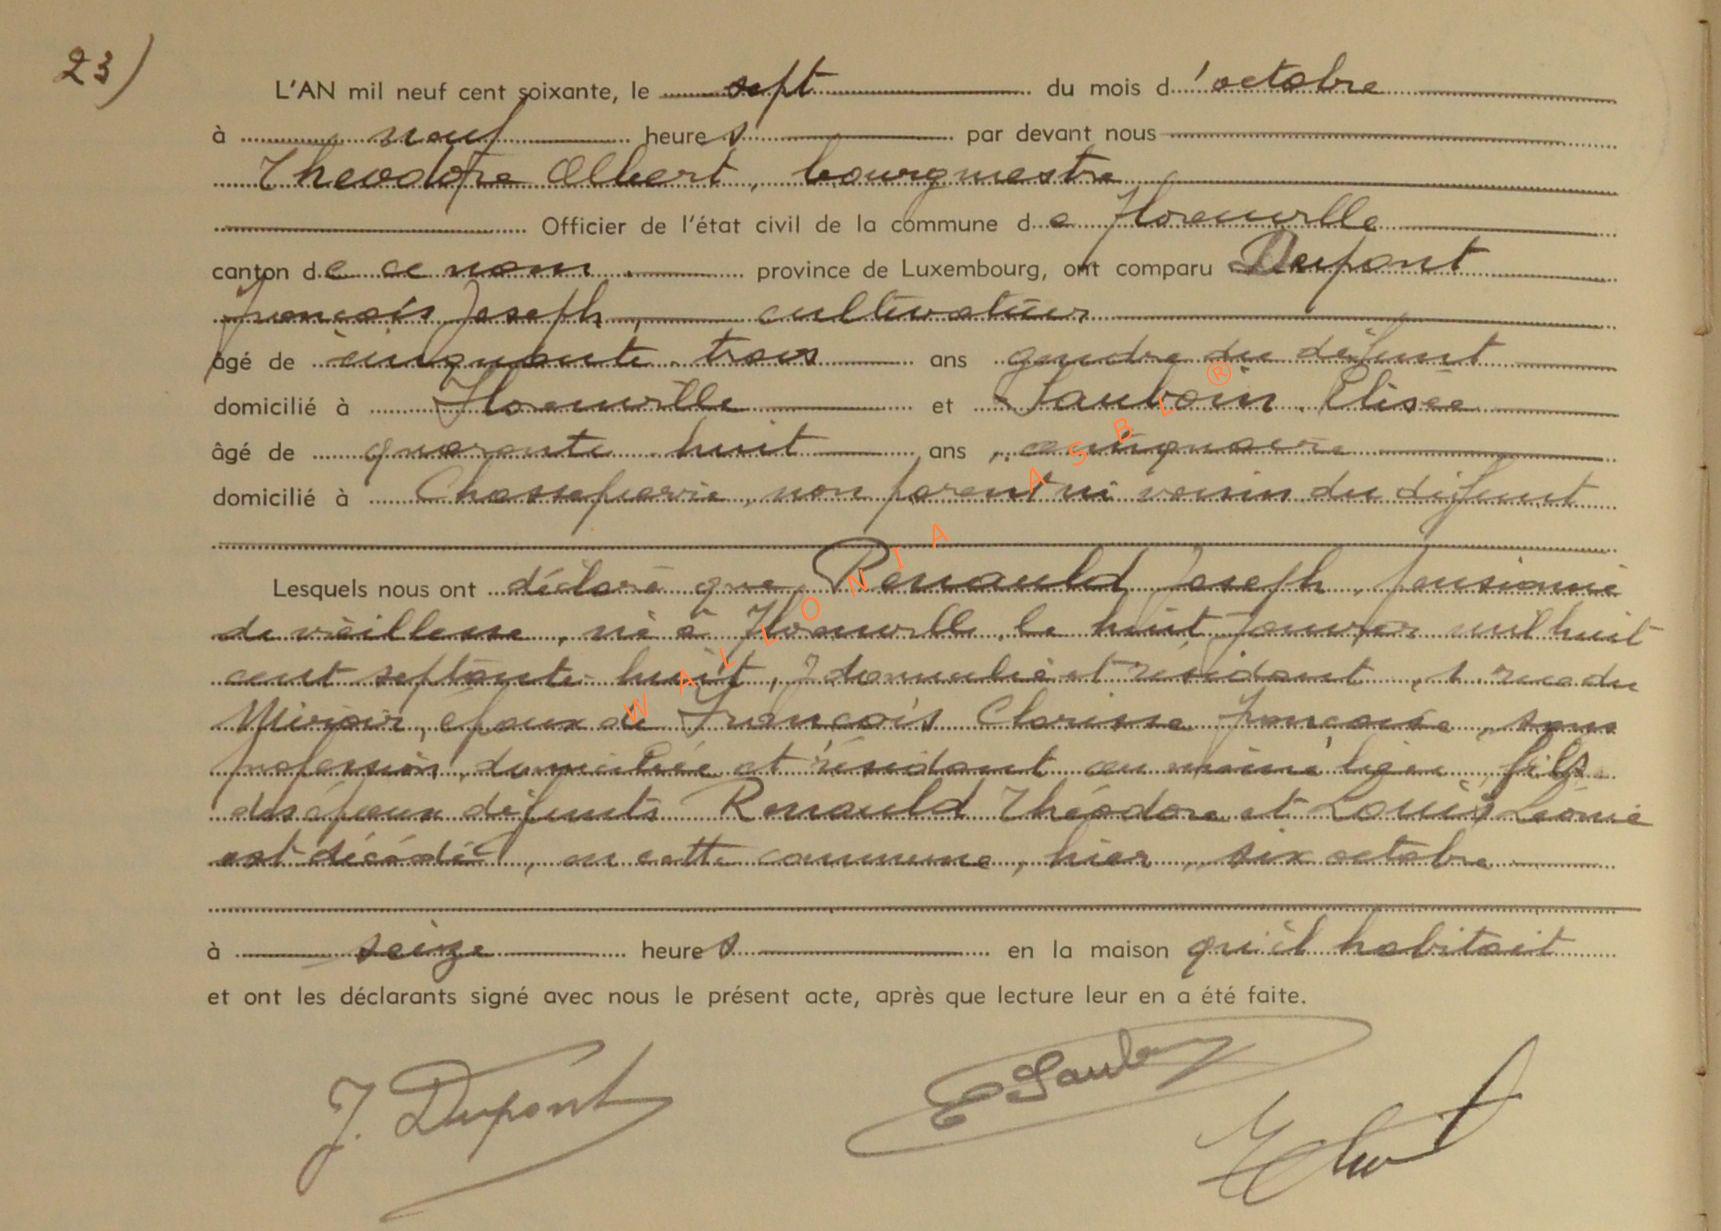 23)
L'AN mil neuf cent soixante, le sept du mois d'octobre
à neuf heures par devant nous
Théodore Albert, bourgmestre
Officier de l'état civil de la commune de Florenville
canton de ce nom. province de Luxembourg, ont comparu Dupont
François Joseph, cultivateur
âgé de cinquante trois ans gendre du défunt
domicilié à Florenville et Jauboin Elisée
âgé de quarante huit ans, cantonnaire
domicilié à Chassepierre, non parent ni voisin du défunt
Lesquels nous ont déclaré que Renauld Joseph, pensionné
de vieillesse, né à Florenville, le huit janvier mil huit
cent septante huit, y domicilié et résidant, 1. rue du
Miroir, époux de François Clarisse Françoise, sans
profession, domiciliée et résidant au même lieu, fils
des époux défunts Renauld Théodore et Louis Léonie
est décédé, en cette commune, hier, six octobre
à seize heures en la maison qu'il habitait
et ont les déclarants signé avec nous le présent acte, après que lecture leur en a été faite.
J. Dupont
WALLONIA ASBL ®